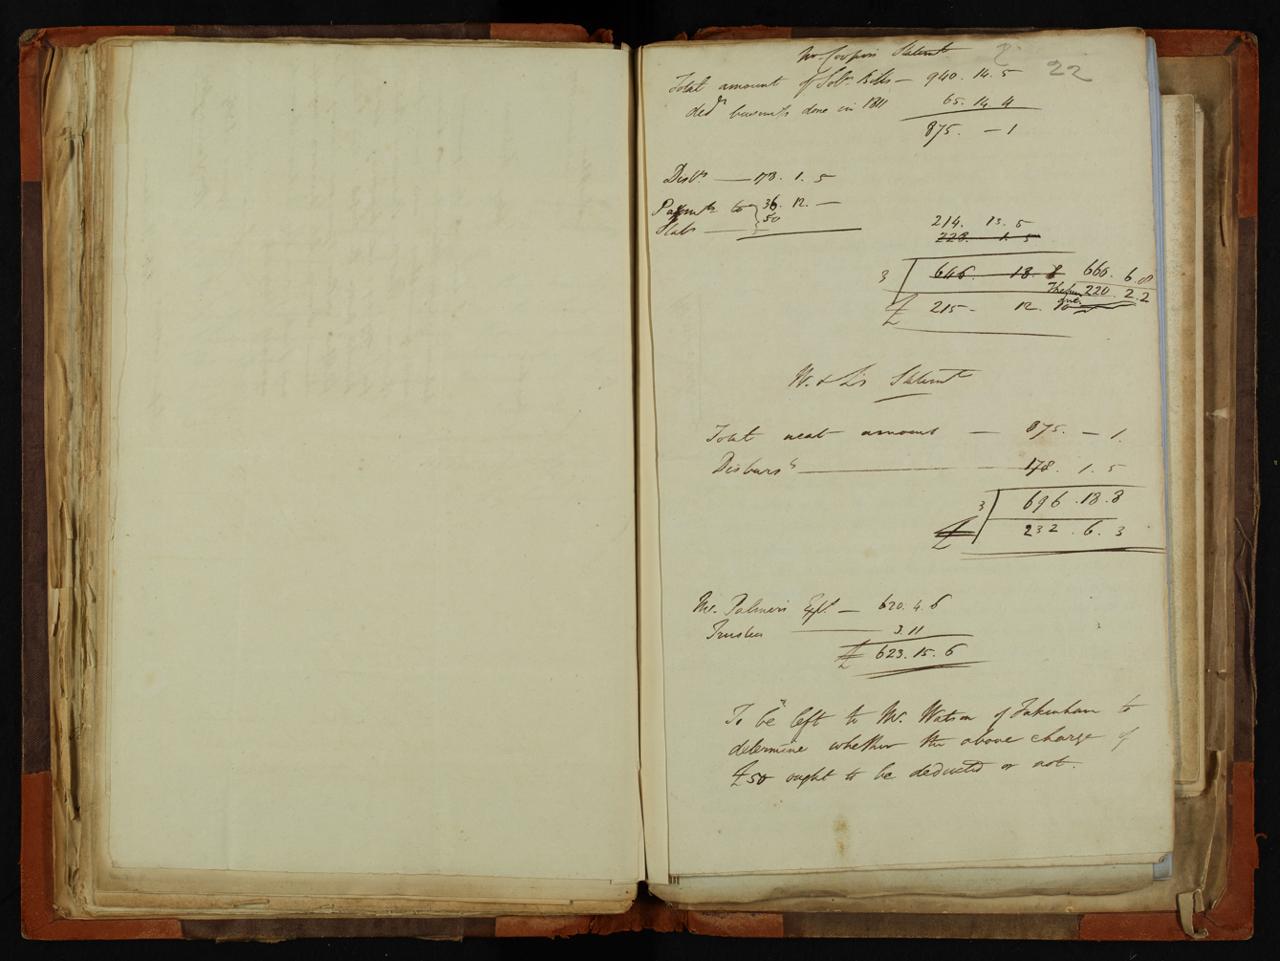 Mr. Coopers Statemt 22
Total amount of Solrs. Bills — 940. 14. 5
dedt business done in 1811 65. 14 4
875. — 1
Disbts — 178. 1. 5
Paymts to 36. 12. —
50
214. 13. 5
228. 1. 5
3 646 18 8 660. 6. 8
Therefore due 220. 2. 2
£ 215 - 12. 10
W. & L's Statemt
Total neat amount — 875. — 1.
Disbursts — 178. 1. 5
3 696. 18. 8
£ 232. 6. 3
Mr. Palmers — 620. 4. 6
Trustees — 3. 11
£ 623. 15. 6
To be left to Mr. Watson of Fakenham to
determine whether the above charge of
£50 ought to be deducted or not.